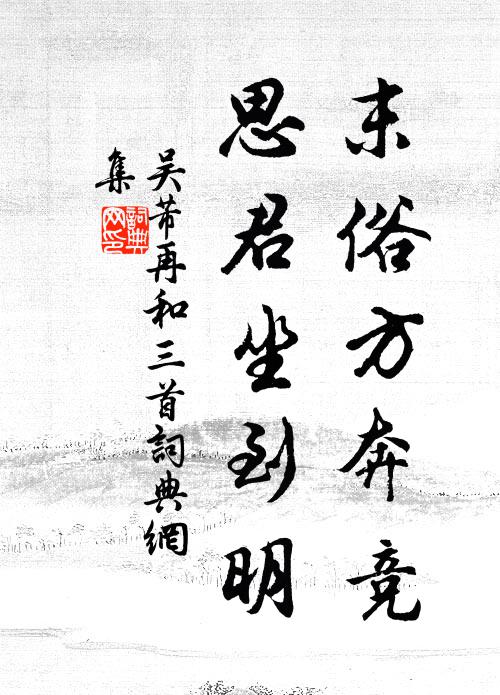 末俗方奔竞
思君坐到明
吴芾再和三首詞典網
集
詞典
网印